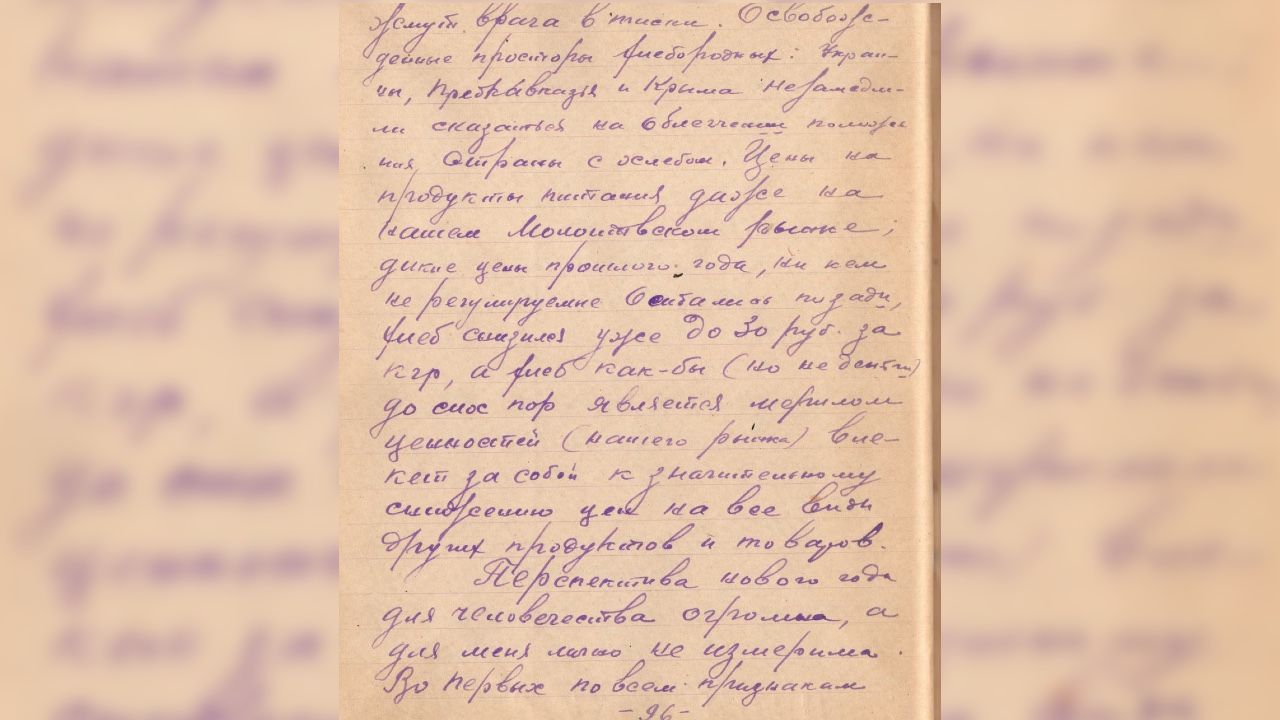 жмут врача в тиски. Освобож-
денные просторы хлебородных: Украи-
ны, Предкавказья и Крыма незамедли-
ли сказаться на облегчении положе
ния Страны с хлебом. Цены на
продукты питания даже на
нашем Молотовском рынке;
дикие цены прошлого года, ни кем
не регулируемые остались позади,
хлеб снизился уже до 30 руб. за
кгр, а хлеб как-бы (но не деньги)
до сих пор является мерилом
ценностей (нашего рынка) вле-
кет за собой к значительному
снижению цен на все виды
других продуктов и товаров.
Перспектива нового года
для человечества огромна, а
для меня лично не измерима.
Во первых по всем признакам
-96-